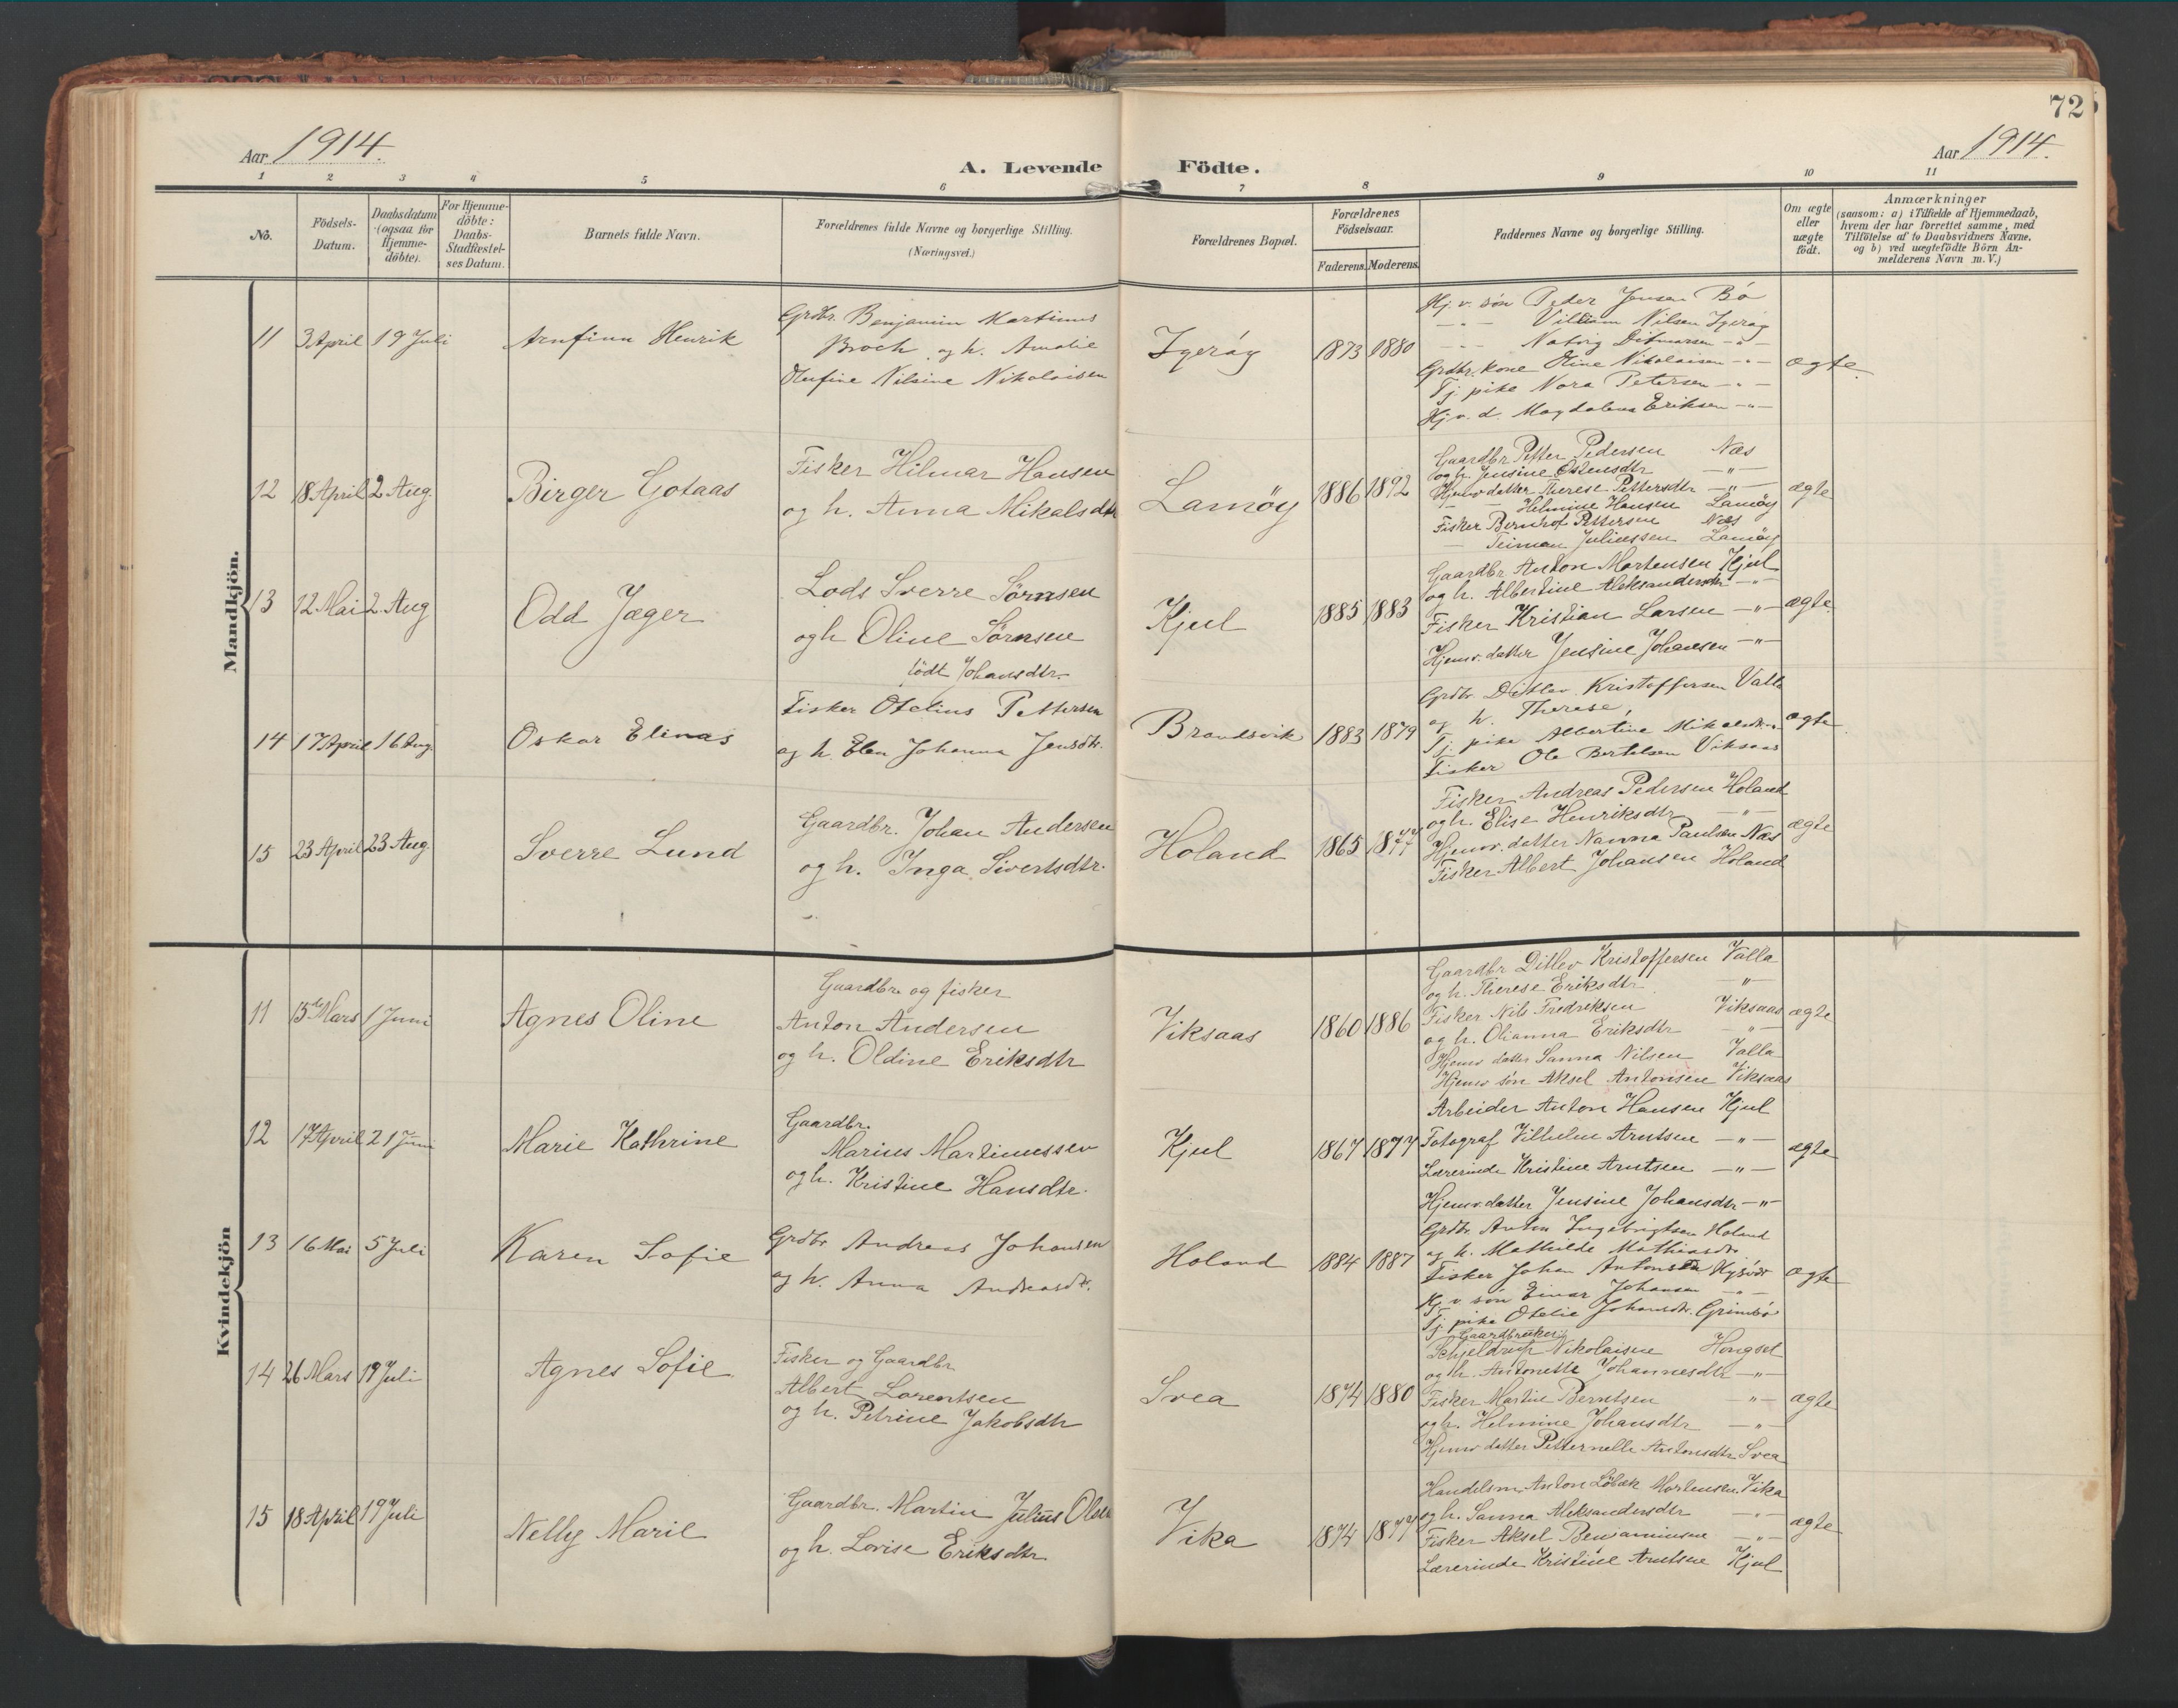 72
Aar 1914.
Aar 1914.
A. Levende Födte.
1 2 3 4 5 6 7 8 9 10 11
No.
Födsels-Datum.
Daabsdatum (ogsaa for Hjemme-döbte).
For Hjemme-döbte: Daabs-Stadfæstel-ses Datum.
Barnets fulde Navn.
Forældrenes fulde Navne og borgerlige Stilling.
(Næringsvei.)
Forældrenes Bopæl.
Forældrenes Födselsaar.
Faderens. Moderens.
Faddernes Navne og borgerlige Stilling.
Om ægte eller uægte födt.
Anmærkninger
(saasom: a) i Tilfælde af Hjemmedaab,
hvem der har forrettet samme, med
Tilföielse af to Daabsvidners Navne,
og b) ved uægtefödte Börn An-
melderens Navn m. V.)
Mandkjön.
11 3 April 19 Juli Arnfinn Henrik
Grdbr. Benjamin Martinus
Broch og h. Amalie
Olufine Nilsine Nikolaisen
Igerøy 1873 1880
Hj. v. søn Peder Jensen Bø
—"— William Nilsen Igerøy
—"— Ditmarsen —"—
Grdbr. kone Oline Nikolaisen —"—
Tj. pike Nora Petersen —"—
Hj. v. d. Magdalena Eriksen —"—
ægte.
12 18 April 2 Aug. Birger Gotaas
Fisker Hilmar Hansen
og h. Anna Mikalsdtr
Lamöy 1886 1892
Gaardbr Petter Pedersen Næs
og h. Jensine Ostensdtr —"—
Hjemv datter Therese Pettersdtr —"—
— — Helmine Hansen Lamöy
Fisker Bernhof Pettersen Næs
— Teiman Juliussen Lamöy
ægte
13 12 Mai 2 Aug Odd Jæger
Lods Sverre Sörnsen
og h Oline Sörnsen
födt Johansdtr.
Kjul 1885 1883
Gaardbr Anton Martensen Kjul
og h. Albertine Aleksandersdtr —"—
Fisker Kristian Larsen —"—
Hjemv. datter Jensine Johansen —"—
ægte.
14 17 April 16 Aug. Oskar Elinas
Fisker Otelius Pettersen
og h. Elen Johanna Jensdtr.
Brandsvik 1883 1879
Grdbr. Ditlev Kristoffersen Valla
og h. Therese,
Tj. pike Albertine Mikalsdtr. —"—
Fisker Ole Bertelsen Viksaas
ægte.
15 23 April 23 Aug. Sverre Lund
Gaardbr. Johan Andersen
og h. Inga Sivertsdtr.
Holand 1865 1877
Fisker Andreas Pedersen Holand
og h. Elise Henriksdtr —"—
Hjemv. datter Nanna Paulsen Næs
Fisker Albert Johansen Holand
ægte
Kvindekjön
11 15de Mars 1 Juni Agnes Oline
Gaardbr og fisker
Anton Andersen
og h. Oldine Eriksdtr
Viksaas 1860 1886
Gaardbr Ditlev Kristoffersen Valla
og h. Therese Eriksdtr —"—
Fisker Nils Fredriksen Viksaas
og h. Olianna Eriksdtr —"—
Hjemv datter Sanna Nilsen Valla
Hjemv søn Aksel Antonsen Viksaas
ægte
12 17 April 21 Juni Marie Kathrine
Gaardbr.
Marius Martinussen
og h. Kristine Hansdtr.
Kjul 1867 1877
Arbeider Anton Hansen Kjul
Fotograf Vilhelm Arntsen —"—
Lærerinde Kristine Arntsen —"—
Hjemv. datter Jensine Johansdtr —"—
ægte
13 16 Mai 5 Juli Karen Sofie
Grdbr Andreas Johansen
og h. Anna Andreasdtr.
Holand 1884 1887
Grdbr. Anton Ingebrigtsen Holand
og h. Mathilde Mathiasdtr.
Fisker Johan Antonsen
Hj. v søn Einar Johansen —"—
Tj. pike Otelie Johansdtr. Grimsö
ægte
14 26 Mars 19 Juli Agnes Sofie
Fisker og Gaardbr
Albert Lorentsen
og h. Petrine Jakobsdtr
Svea 1874 1880
Gaardbruker
Schjeldrup Nikolaisen Hongset
og h. Antonette Johannesdtr —"—
Fisker Martin Berntsen —"—
og h. Helmine Johansdtr —"—
Hjemv datter Petternelle Antonsdtr Svea
ægte
15 18 April 19 Juli Nelly Marie
Gaardbr. Martin Julius Olsen
og h. Lovise Eriksdtr
Vika 1874 1877
Handelsm. Anton Löbak Mortensen Vika
og h. Sanna Aleksandersdtr —"—
Fisker Aksel Benjaminsen —"—
Lærerinde Kristine Arntsen Kjul
ægte